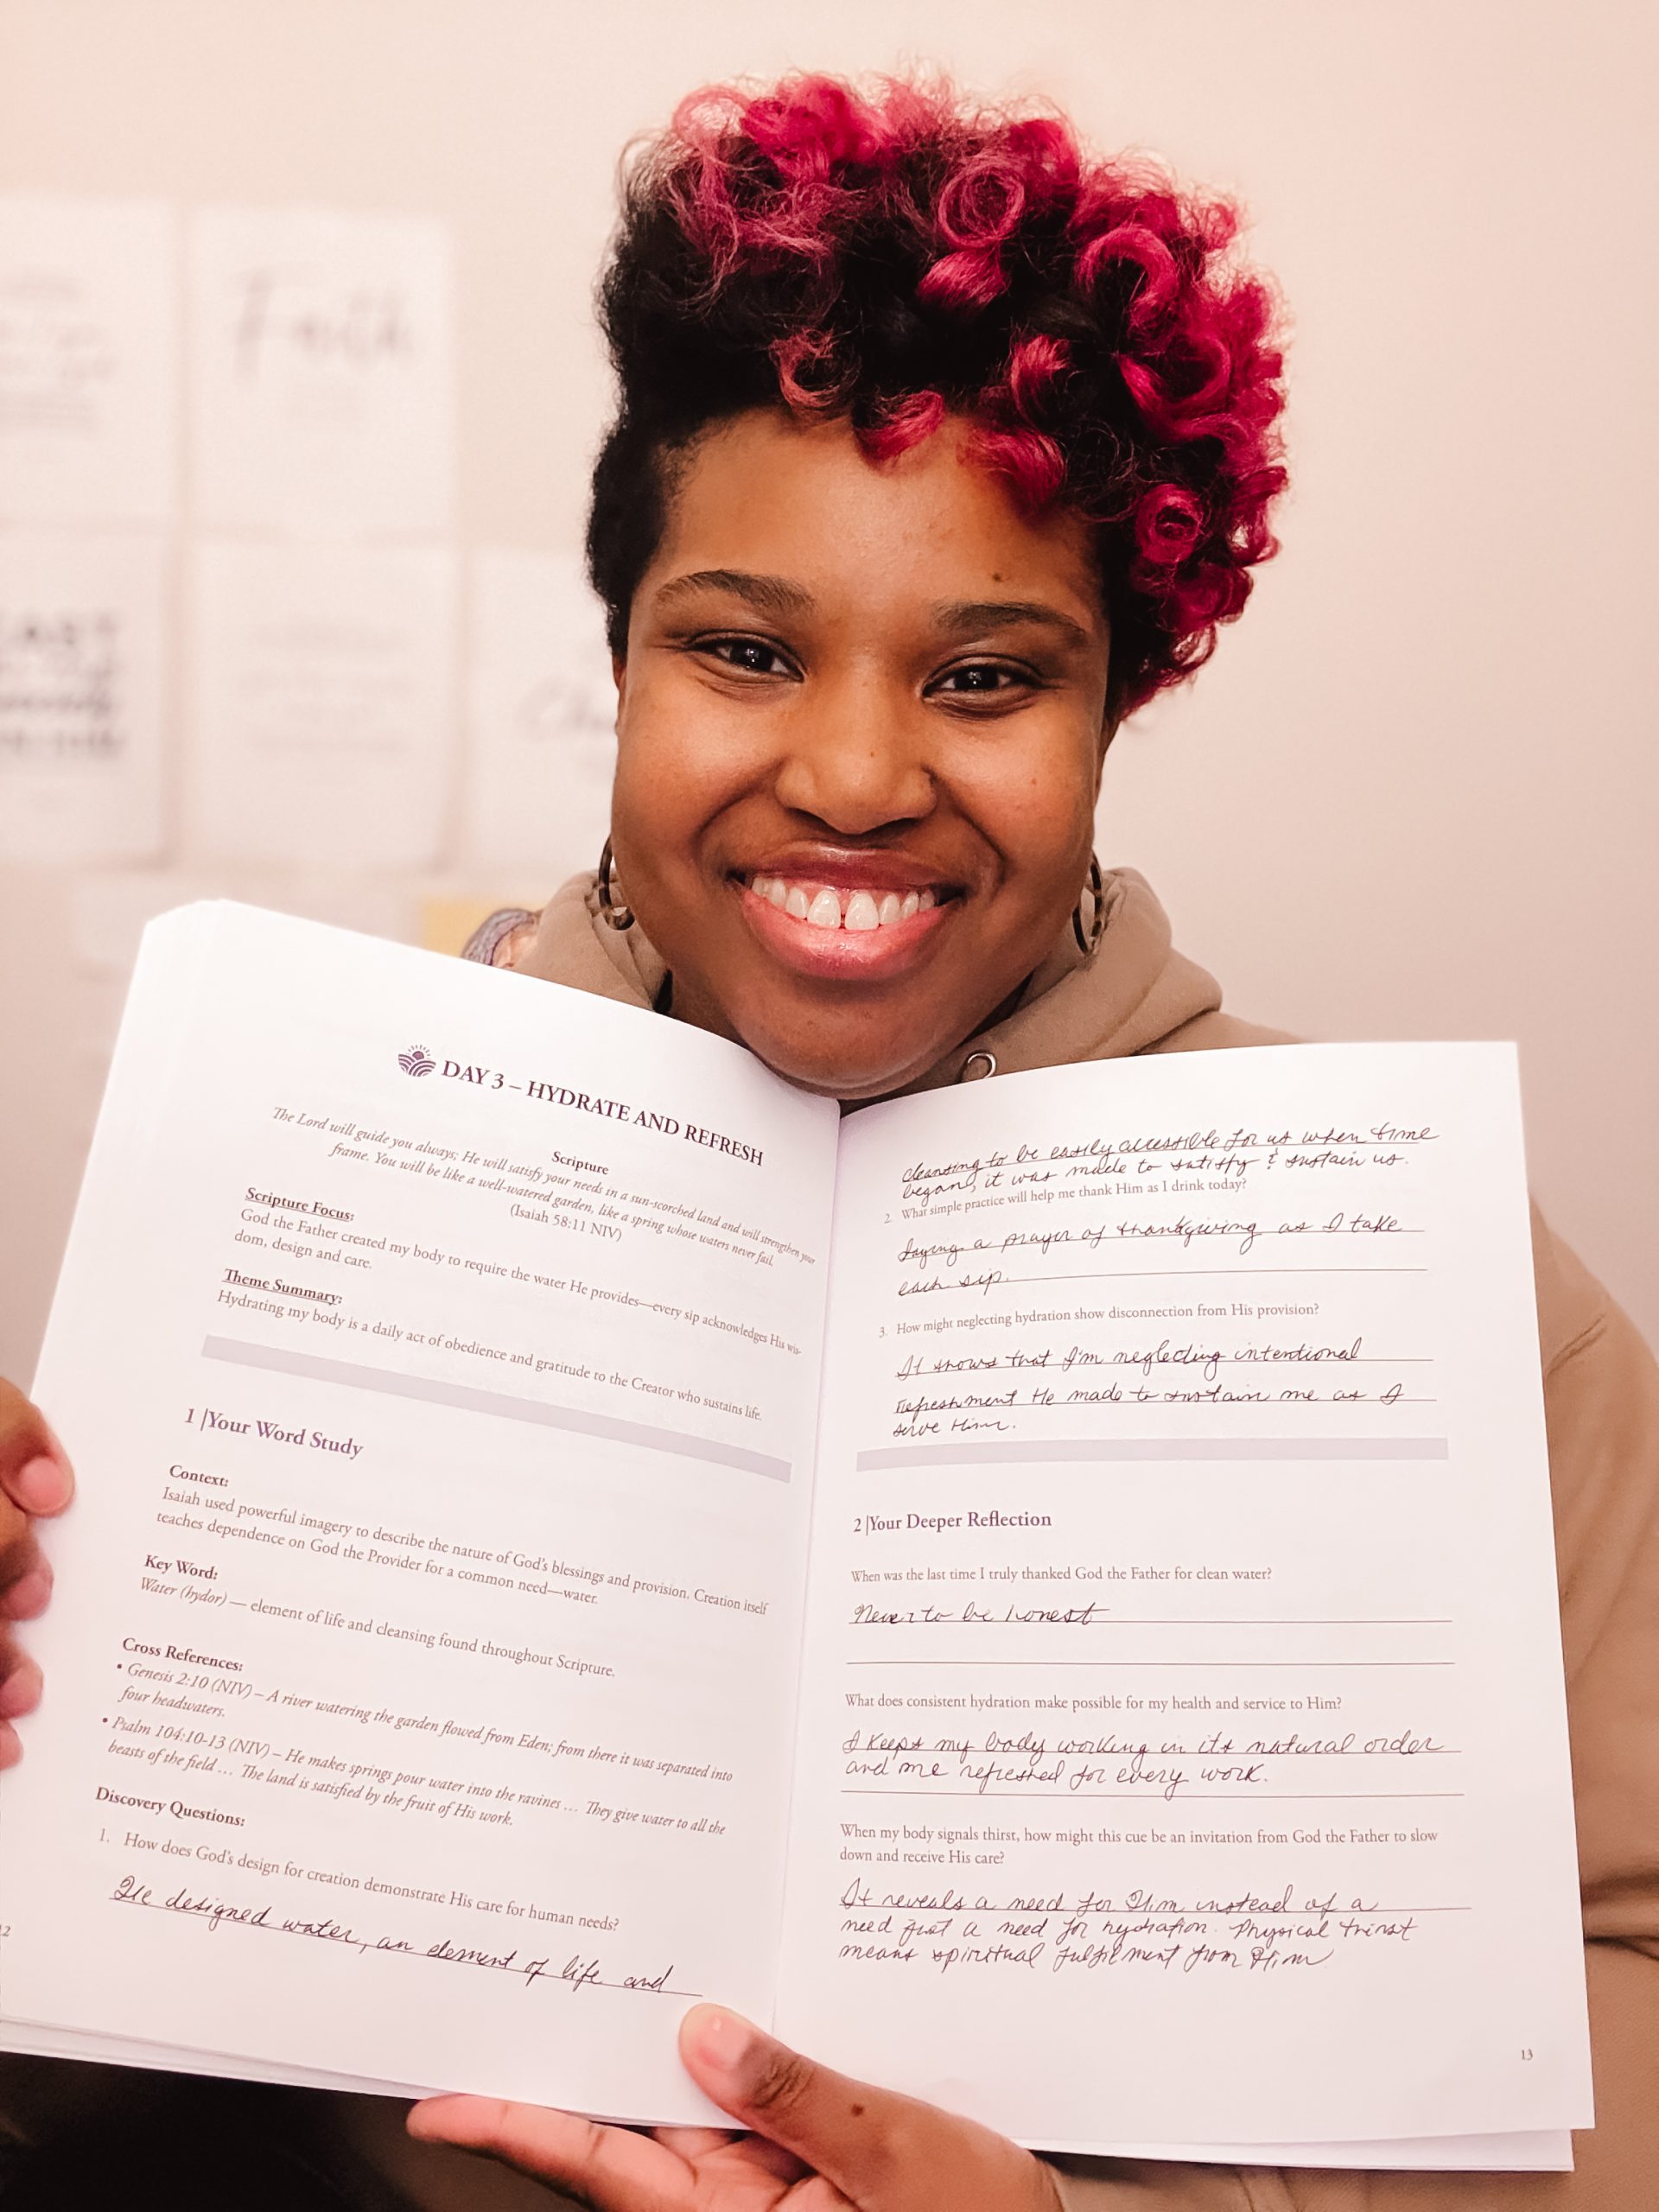 Faith
EAST
DAY 3 – HYDRATE AND REFRESH
Scripture
The Lord will guide you always; He will satisfy your needs in a sun-scorched land and will strengthen your
frame. You will be like a well-watered garden, like a spring whose waters never fail.
(Isaiah 58:11 NIV)
Scripture Focus:
God the Father created my body to require the water He provides—every sip acknowledges His wis-
dom, design and care.
Theme Summary:
Hydrating my body is a daily act of obedience and gratitude to the Creator who sustains life.
1 |Your Word Study
Context:
Isaiah used powerful imagery to describe the nature of God's blessings and provision. Creation itself
teaches dependence on God the Provider for a common need—water.
Key Word:
Water (hydor) — element of life and cleansing found throughout Scripture.
Cross References:
• Genesis 2:10 (NIV) – A river watering the garden flowed from Eden; from there it was separated into
four headwaters.
• Psalm 104:10-13 (NIV) – He makes springs pour water into the ravines … They give water to all the
beasts of the field … The land is satisfied by the fruit of His work.
Discovery Questions:
1. How does God's design for creation demonstrate His care for human needs?
He designed water, an element of life and
2
cleansing to be easily accessible for us when time
began, it was made to satisfy & sustain us.
2. What simple practice will help me thank Him as I drink today?
Saying a prayer of thanksgiving as I take
each sip.
3. How might neglecting hydration show disconnection from His provision?
It shows that I'm neglecting intentional
refreshment He made to sustain me as I
serve Him.
2 |Your Deeper Reflection
When was the last time I truly thanked God the Father for clean water?
Never to be honest
What does consistent hydration make possible for my health and service to Him?
I keeps my body working in its natural order
and me refreshed for every work.
When my body signals thirst, how might this cue be an invitation from God the Father to slow
down and receive His care?
It reveals a need for Him instead of a
need just a need for hydration. Physical thirst
means spiritual fulfilment from Him
13